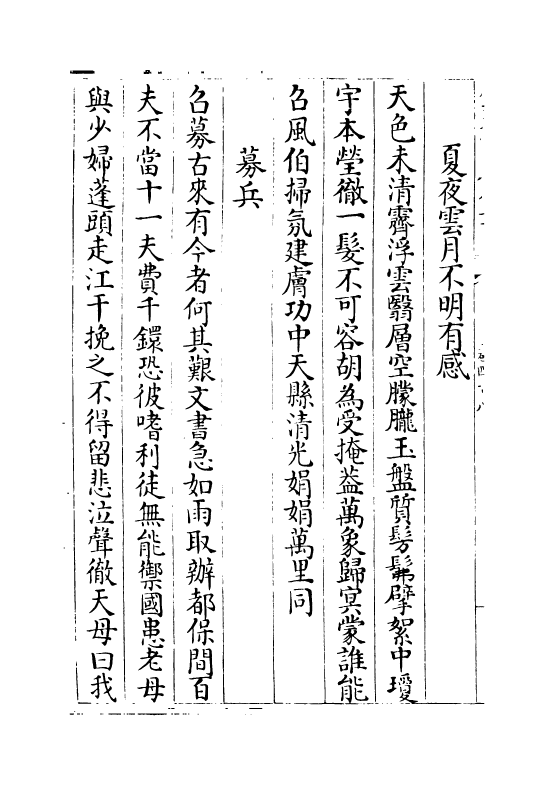 夏夜雲月不明有感
天色未清霽浮雲翳層空朦朧玉盤質髣髴擘絮中瓊
宇本瑩徹一髮不可容胡為受掩葢萬象歸㝠蒙誰能
召風伯掃氛建膚功中天縣清光娟娟萬里同
募兵
召募古來有今者何其艱文書急如雨取辦都保間百
夫不當十一夫費千鐶恐彼嗜利徒無能禦國患老母
與少婦蓬頭走江干挽之不得留悲泣聲徹天母曰我